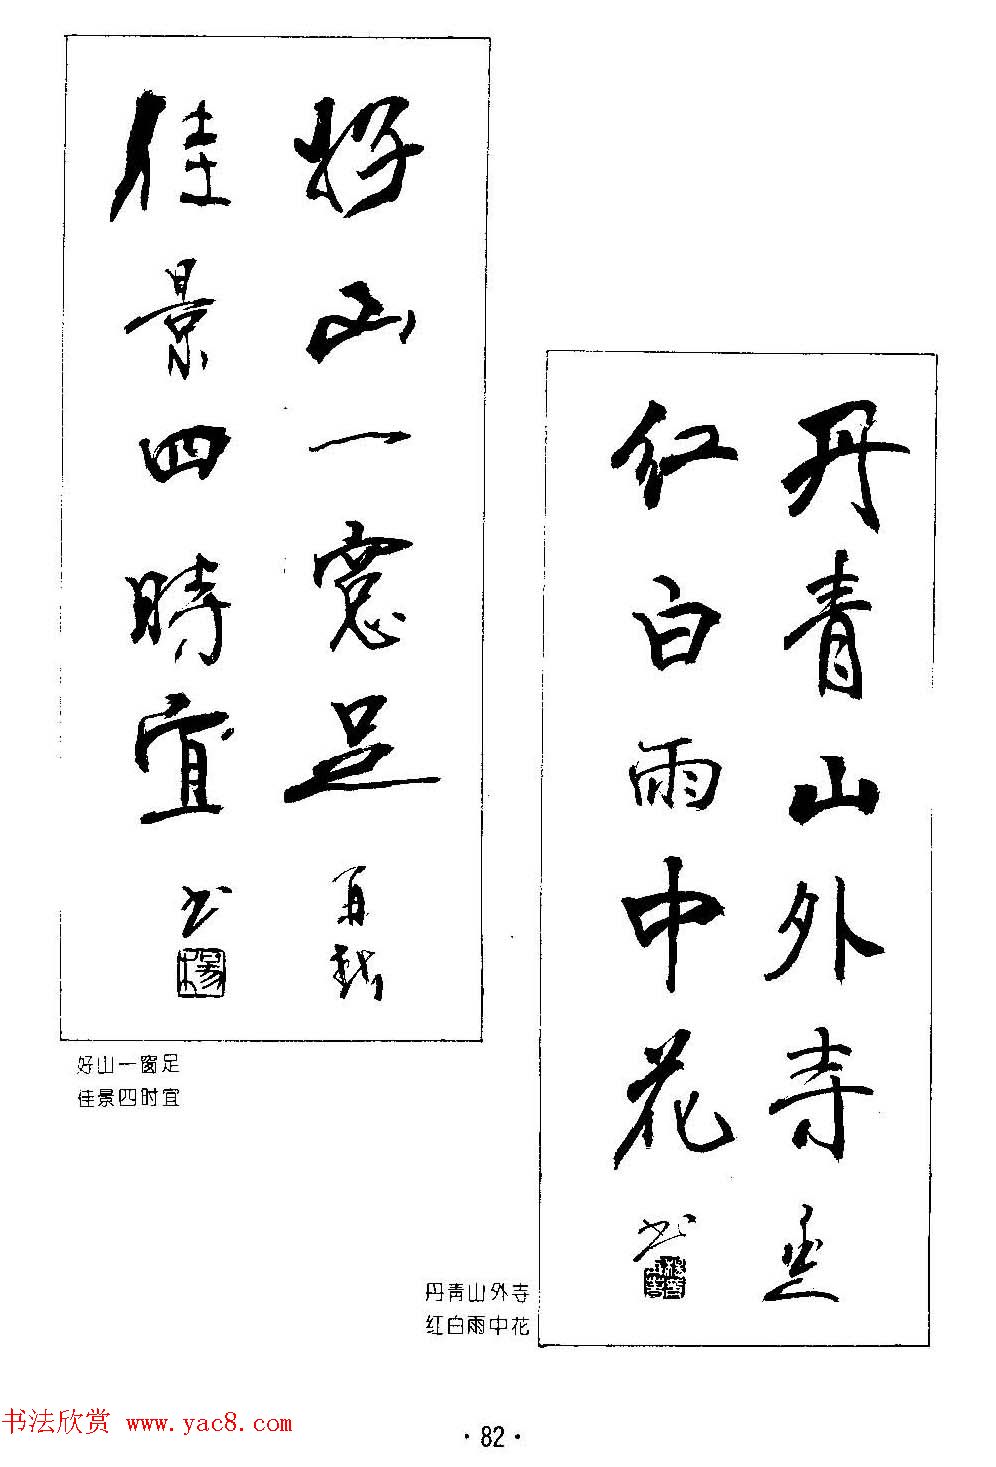 好山一窗足
佳景四時宜
书
杨
好山一窗足
佳景四时宜
丹青山外寺
红白雨中花
书
丹青山外寺
红白雨中花
书法欣赏 www.yac8.com
·82·